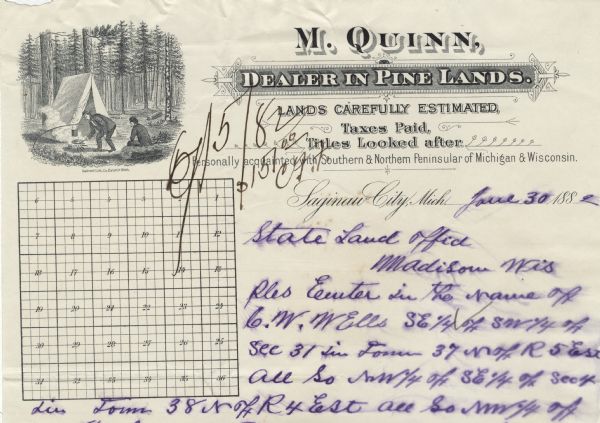 M. QUINN,
DEALER IN PINE LANDS.
LANDS CAREFULLY ESTIMATED,
Taxes Paid,
Titles Looked after
Personally acquainted with Southern & Northern Peninsular of Michigan & Wisconsin.
Saginaw City, Mich. June 30 1882
State Land offic
Madison Wis
ples Eenter in the name off
C. W. WElls SE 1/4 of SW 1/4 of
Sec 31 in Town 37 N of R 5 East
all So NW 1/4 of SE 1/4 of Sec 4
in Town 38 N of R 4 ESt all So NW 1/4 of
6 5 4 3 2 1
7 8 9 10 11 12
18 17 16 15 14 13
19 20 21 22 23 24
30 29 28 27 26 25
31 32 33 34 35 36